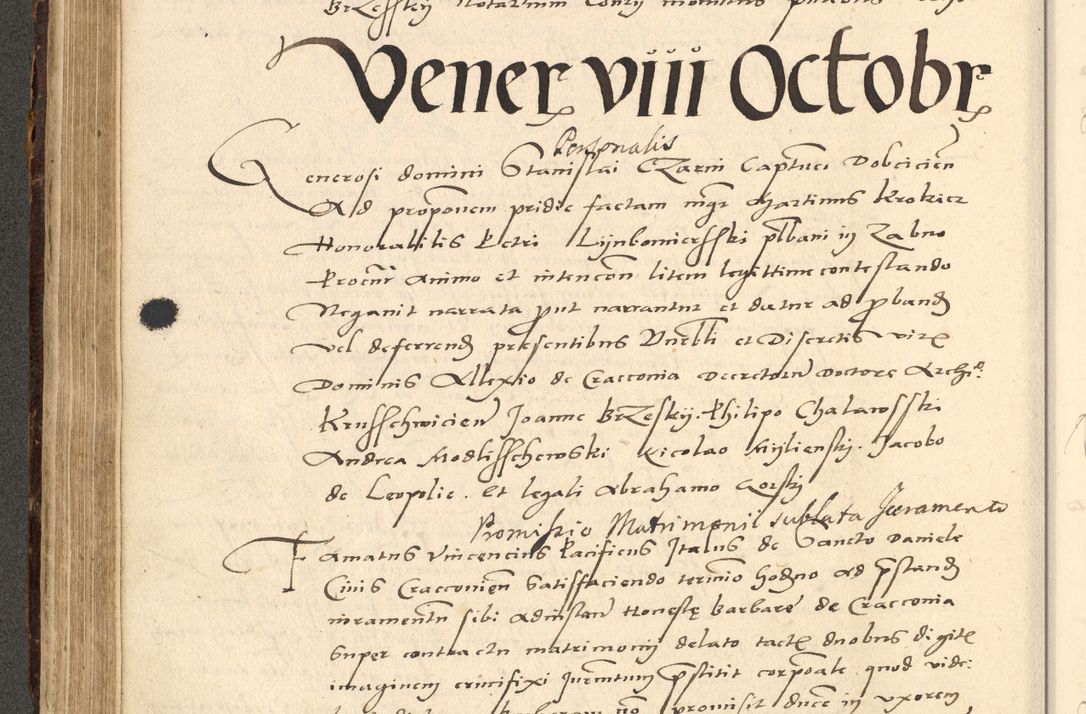 Brzesskÿ Notarium
Vener viii Octobr
Personalis
Generosi domini Stanislai CZarni Captnei Dobcicien
Ad proponem pridie factam mgr Martinus Krokier
Honorabilis Petri Lÿnbomiersski plbani in Zabno
Procur animo et intencon litem legittime contestando
Neganit narrata put narrantur et datur ad pband
vel deferrend presentibus Vnebli et Discretis viris
Dominis Allexio de Cracconia Decretorum Doctore Archi
Krusschwicien Joanne BrZeskÿ. Philipo Chalawsski
Andrea Modlisschewski Nicolao Mÿlienskÿ. Jacobo
de Leopolie. Et legali Abrahamo Gorskÿ
Promissio Matrimonii sublata Juramento
Famatus Vincencius Pacificus Italus de Sancto Daniele
Civis Cracconien Satisfaciendo termio hodno ad pstand
iuramentu sibi ad instan Honeste Barbare de Cracconia
Super contractu matrimonii delato tactis duobus digitis
imaginem crucifixi Juramtum pstitit corpoale quod vide:
promisit duce in vxorem